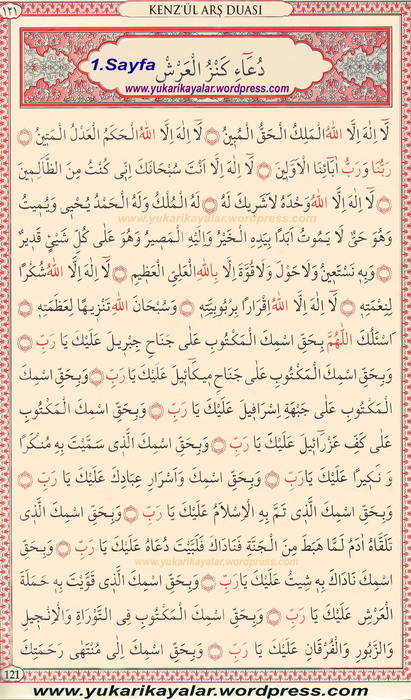 ١٢١
KENZ'ÜL ARŞ DUASI
1.Sayfa
دُعَاءِ كَنْزُ الْعَرْشْ
www.yukarikayalar.wordpress.com
لَٓا اِلٰهَ اِلَّا اللّٰهُ الْمَلِكُ الْحَقُّ الْمُبٖينُ لَٓا اِلٰهَ اِلَّا اللّٰهُ الْحَكَمُ الْعَدْلُ الْمَتٖينُ
رَبُّنَا وَرَبُّ اٰبَٓائِنَا الْاَوَّلٖينَ لَٓا اِلٰهَ اِلَّٓا اَنْتَ سُبْحَانَكَ اِنّٖى كُنْتُ مِنَ الظَّالِمٖينَ
لَٓا اِلٰهَ اِلَّا اللّٰهُ وَحْدَهُ لَاشَرٖيكَ لَهُ لَهُ الْمُلْكُ وَلَهُ الْحَمْدُ يُحْيٖى وَيُمٖيتُ
www.yukarikayalar.wordpress.com
وَهُوَ حَىٌّ لَا يَمُوتُ اَبَدًا بِيَدِهِ الْخَيْرُ وَاِلَيْهِ الْمَصٖيرُ وَهُوَ عَلٰى كُلِّ شَىْءٍ قَدٖيرٌ
وَبِهٖ نَسْتَعٖينُ وَلَا حَوْلَ وَلَا قُوَّةَ اِلَّا بِاللّٰهِ الْعَلِىِّ الْعَظٖيمِ لَٓا اِلٰهَ اِلَّا اللّٰهُ شُكْرًا
لِنِعْمَتِهٖ لَٓا اِلٰهَ اِلَّا اللّٰهُ اِقْرَارًا بِرُبُوبِيَّتِهٖ وَسُبْحَانَ اللّٰهِ تَنْزٖيهًا لِعَظَمَتِهٖ
اَسْئَلُكَ اللّٰهُمَّ بِحَقِّ اسْمِكَ الْمَكْتُوبِ عَلٰى جَنَاحِ جِبْرٖيلَ عَلَيْكَ يَا رَبِّ
وَبِحَقِّ اسْمِكَ الْمَكْتُوبِ عَلٰى جَنَاحِ مٖيكَٓائٖيلَ عَلَيْكَ يَا رَبِّ وَبِحَقِّ اسْمِكَ
الْمَكْتُوبِ عَلٰى جَبْهَةِ اِسْرَافٖيلَ عَلَيْكَ يَا رَبِّ وَبِحَقِّ اسْمِكَ الْمَكْتُوبِ
عَلٰى كَفِّ عَزْرَٓائٖيلَ عَلَيْكَ يَا رَبِّ وَبِحَقِّ اسْمِكَ الَّذٖى سَمَّيْتَ بِهٖ مُنْكَرًا
وَ نَكٖيرًا عَلَيْكَ يَا رَبِّ وَبِحَقِّ اسْمِكَ وَاَسْرَارِ عِبَادِكَ عَلَيْكَ يَا رَبِّ
وَبِحَقِّ اسْمِكَ الَّذٖى تَمَّ بِهِ الْاِسْلَامُ عَلَيْكَ يَا رَبِّ وَبِحَقِّ اسْمِكَ الَّذٖى
تَلَقَّاهُ اٰدَمُ لَمَّا هَبَطَ مِنَ الْجَنَّةِ فَنَادَاكَ فَلَبَّيْتَ دُعَاهُ عَلَيْكَ يَا رَبِّ وَبِحَقِّ
www.yukarikayalar.wordpress.com
اسْمِكَ نَادَاكَ بِهٖ شٖيتُ عَلَيْكَ يَارَبِّ وَبِحَقِّ اسْمِكَ الَّذٖى قَوَّيْتَ بِهٖ حَمَلَةَ
الْعَرْشِ عَلَيْكَ يَا رَبِّ وَبِحَقِّ اسْمِكَ الْمَكْتُوبِ فِى التَّوْرَاةِ وَالْاِنْجٖيلِ
وَالزَّبُورِ وَالْفُرْقَانِ عَلَيْكَ يَا رَبِّ وَبِحَقِّ اسْمِكَ اِلٰى مُنْتَهٰى رَحْمَتِكَ
121
www.yukarikayalar.wordpress.com